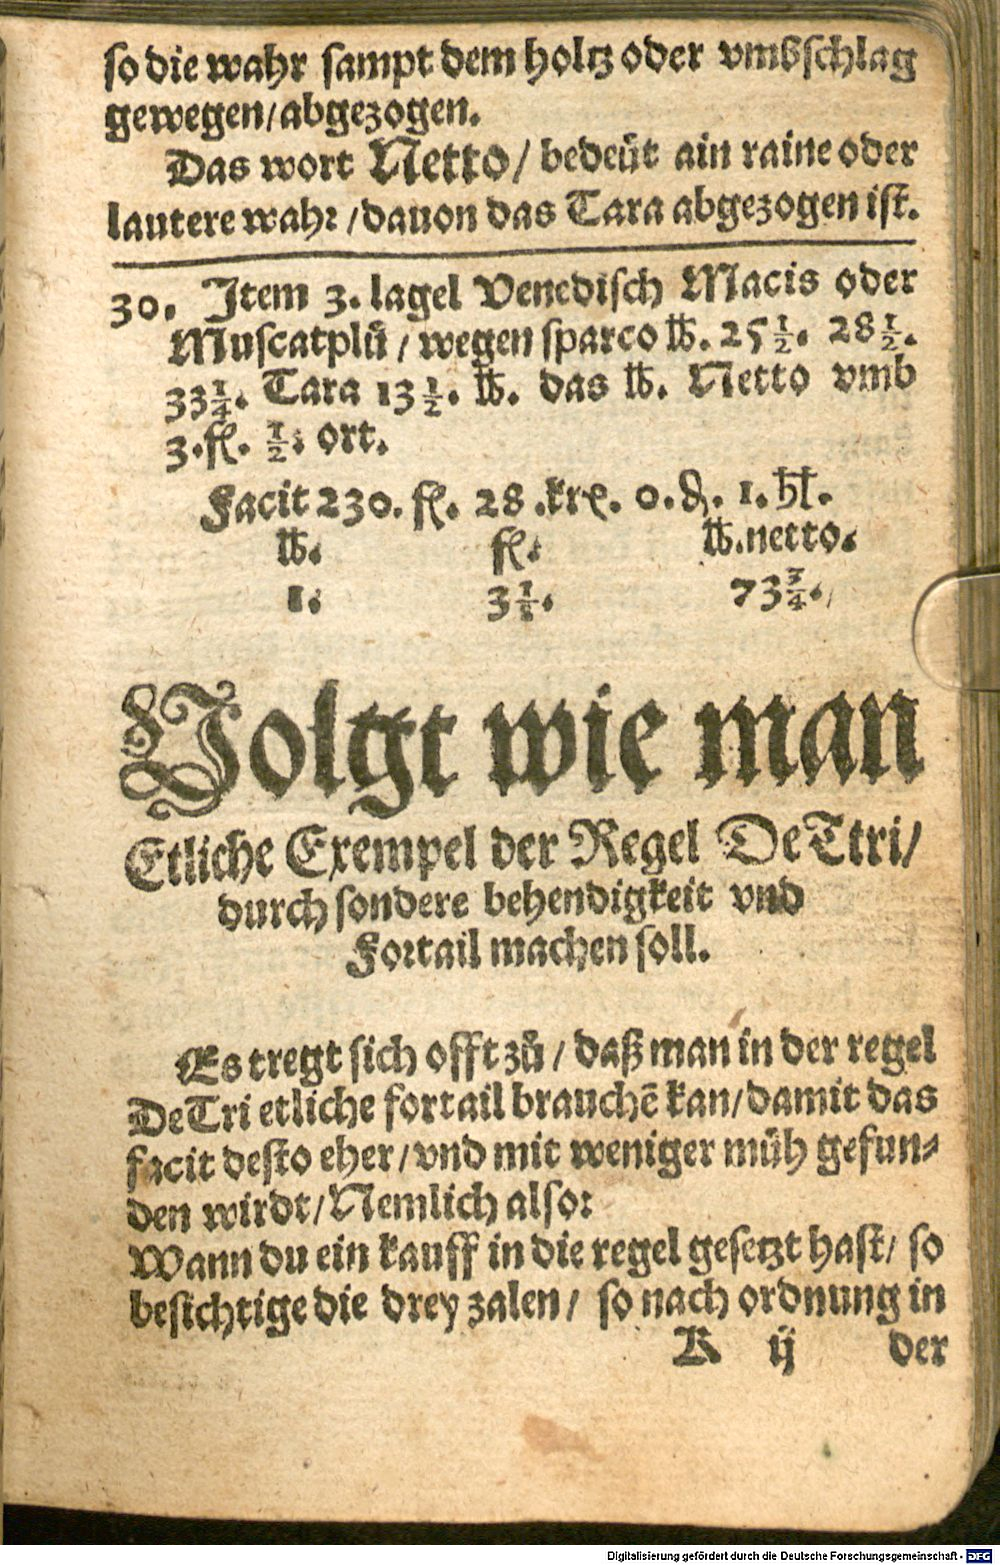 so die wahr sampt dem holtz oder vmbschlag
gewegen/abgezogen.
Das wort Netto/ bedeüt ain raine oder
lautere wahr/dauon das Tara abgezogen ist.
30. Item 3. lagel Venedisch Macis oder
Muscatplů/ wegen sparco lb. 25 1/2. 28 1/2.
33 1/4. Tara 13 1/2. lb. das lb. Netto vmb
3. fl. 1/2. ort.
Facit 230. fl. 28. krz. 0. ₰. 1. hl.
lb. fl. lb. netto.
1. 3 1/8. 73 3/4.
Volgt wie man
Etliche Exempel der Regel De Ttri/
durch sondere behendigkeit vnd
Fortail machen soll.
Es tregt sich offt zů/ daß man in der regel
De Tri etliche fortail brauchē kan/damit das
facit desto eher/vnd mit weniger müh gefun-
den wirdt/Nemlich also:
Wann du ein kauff in die regel gesetzt hast/ so
besichtige die drey zalen/ so nach ordnung in
K ij der
Digitalisierung gefördert durch die Deutsche Forschungsgemeinschaft - DFG